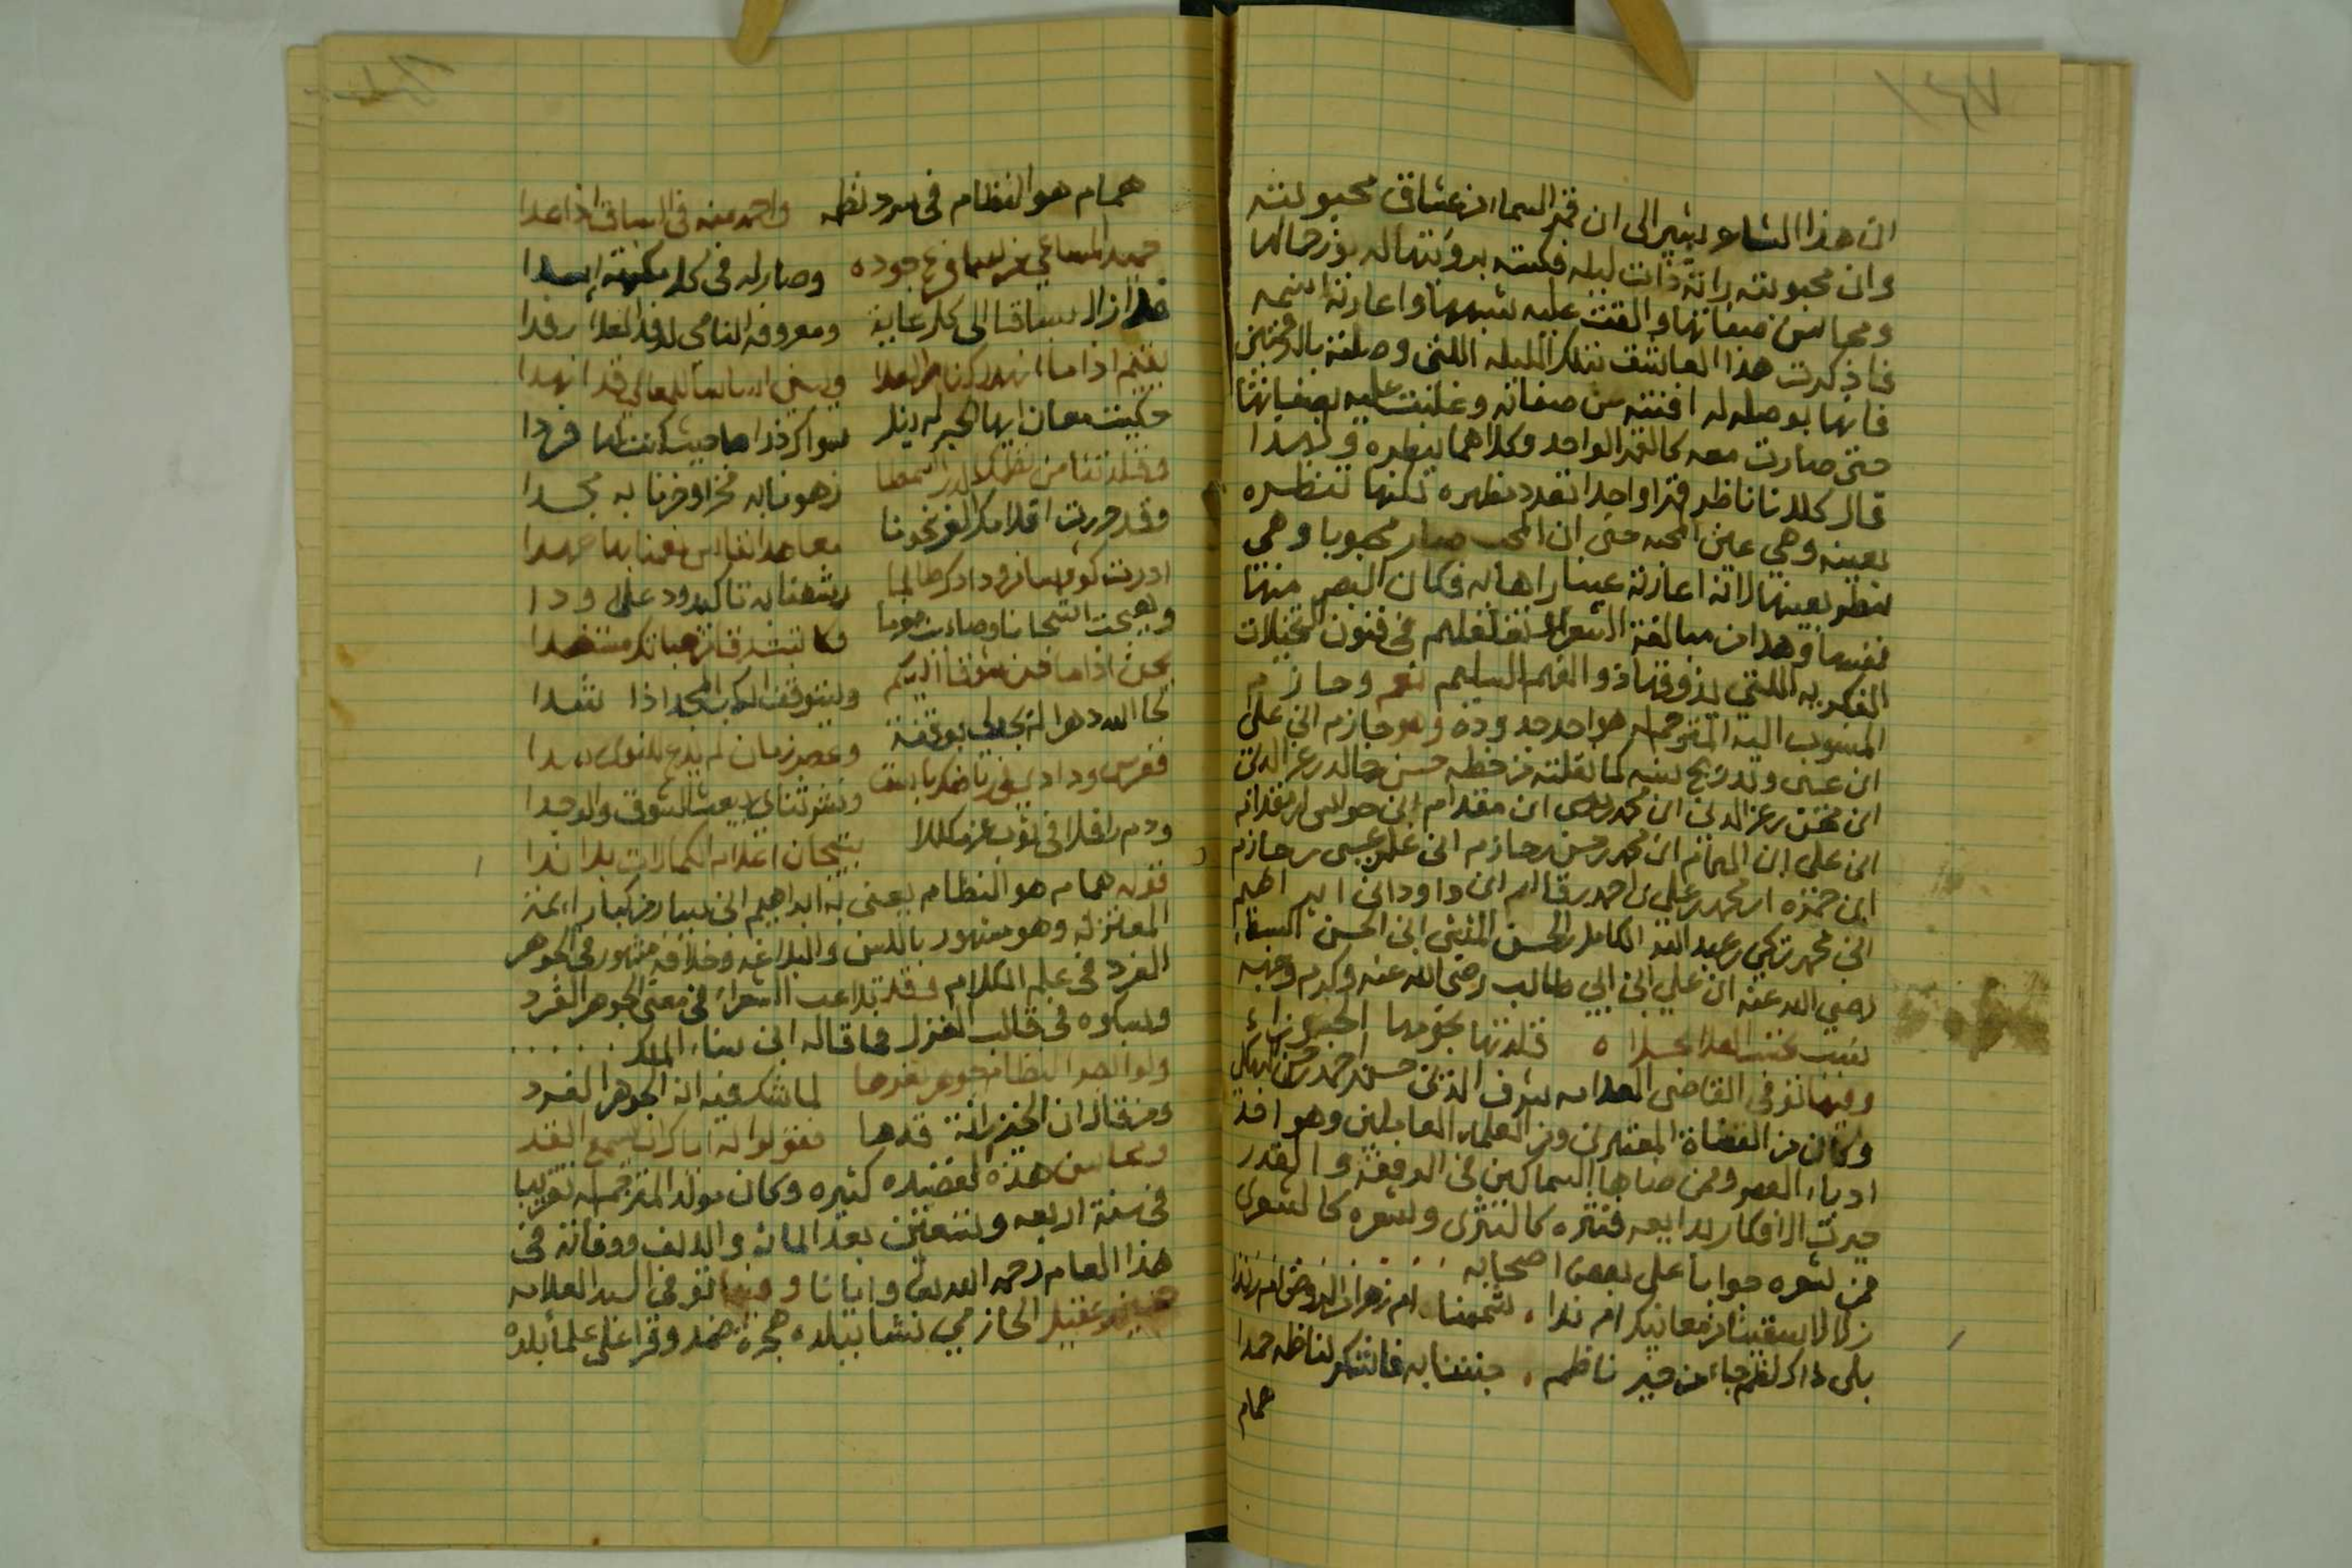 ان هذا الشاعر يشير الى ان قمر السماء من عشاق محبوبته
وان محبوبته راته ذات ليله فكسته برؤيتها له نور جمالها
ومحاسن صفاتها والقت عليه شبهها واعارته اسمه
فاذكرت هذا العاشق تلك الليله اللتي وصلته بالرقمتين
فانها بوصله له افنته عن صفاته وغلبت عليه بصفاتها
حتى صارت معه كالقمر الواحد وكلاهما ينظره ولهذا
قال كلانا ناظر قمرا واحدا تعدد مظهره لكنها تنظره
بعينه وهي عين المحبه حتى ان المحب صار محبوبا وهي
تنظر بعينها لانه اعارته عينا راها به فكان البصر منها
نفسها وهذا من مبالغة الشعراء تغلغلهم في فنون التخيلات
الفكريه اللتي يذوقها ذو الفهم السليم نعم وحازم
المنسوب اليه المترجم له هو احد جدوده وهو حازم ابن علي
ابن عيسى وتدريج نسبه كما نقلته من خطه حسن بن خالد بن عز الدين
ابن محسن بن عز الدين ابن محمد بن موسى ابن مقدام ابن حواس ابن مقدام
ابن علي ابن الهمام ابن محمد بن حسن بن حازم ابن علي بن عيسى بن حازم
ابن حمزه ابن محمد بن علي بن احمد بن قاسم ابن داود ابن ابراهيم
ابن محمد بن تركي بن عبد الله الكامل بن الحسن المثنى ابن الحسن السبط
رضي الله عنه ابن علي ابن ابي طالب رضي الله عنه وكرم وجهه
نسب تحسب العلا بحلاه قلدتها نجومها الجوزاء
وفيها توفي القاضي العلامه شرف الدين حسن بن احمد بن حسن البهكلي
وكان من القضاة المعتبرين ومن العلماء العاملين وهو احد
ادباء العصر وممن ضاها السماكين في الرفعة والقدر
حيرت الافكار بدايعه فنثره كالنثرى وشعره كالشعرى
فمن شعره جوابا على بعض اصحابه
زلالا سقيتنا من معانيك ام ندا . شممنا . ام زهر الروض ام رندا
بلى ذاك نظم جاء من خير ناظم . جننا به فانشكر لناظمه حمدا
همام
همام هو النظام في سرد نظمه واحمد منه في السباق اذا عدا
حميد المساعي فرع جوده وصار له في كل مكرمة
فما زال سباقا الى كل غاية ومعروفه النامي لوفد العلا رفدا
يقيم اذا ما انهد ركن من العلا ويبني اساسا للمعالي قد انهدا
حكيت معان ايها الحبر لم ينل سواك ذراها حيث كنت لها فردا
وقلدتنا من نظمك الدر اسمطا زهونا به فخرا وحزنا به مجدا
وقد حررت اقلامك الغر نحونا معاهد
ادرت كوسا من ودادك طالما رشفنا به تاكيد ود على ودا
وهيجت اشجانا
يحن اذا ما حن شوقا اليكم ويستوقف الركب المجد اذا شدا
لحا الله دهرا لم يجد لي بوقفة وعصر زمان لم يدع للنوى بدا
فغرس ودادي في رياضك يانع ونشر ثنائي يبعث الشوق والوجدا
ودم رافلا في ثوب عز مكللا بتيجان اعلام الكمالات بل اندا
قوله همام هو النظام يعني به ابراهيم ابن سيار من كبار ائمة
المعتزله وهو مشهور باللسن والبلاغه وخلافه مشهور في الجوهر
الفرد في علم الكلام وقد تلاعب الشعراء في معنى الجوهر الفرد
وسبكوه في قالب الغزل مما قاله ابن سناء الملك . . . . .
ولو ابصر النظام جوهر ثغرها لما شك فيه انه الجوهر الفرد
ومن قال ان الخيزرانة قدها فقولوا له اياك ان يسمع القد
ومحاسن هذه القصيده كثيره وكان مولد المترجم له تقريبا
في سنة اربعه وتسعين بعد المائه والالف ووفاته في
هذا العام رحمه الله تعالى وايانا وفيها توفي السيد العلامه
عقيل الحازمي نشا ببلده هجرة ضمد وقرا على علماء بلده